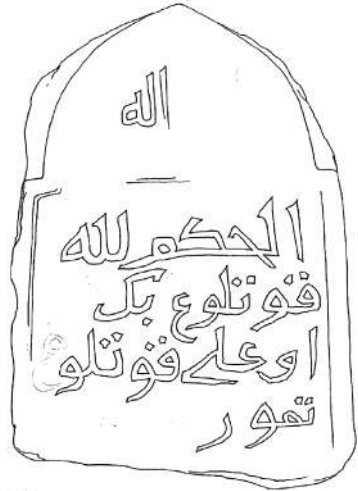 اله
الحكم لله
قوتلوع بك
اوعلى قوتلو
تمور